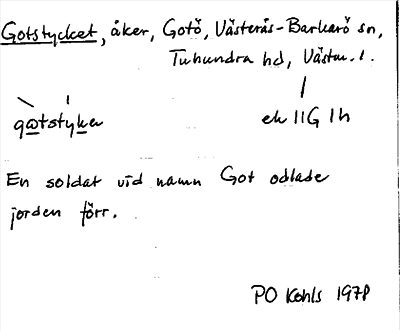 Gotstycket, åker, Gotö, Västerås-Barkarö sn,
Tuhundra hd, Västm. l.
gøtstyken
ek 11G 1h
En soldat vid namn Got odlade
jorden förr.
PO Kohls 1978